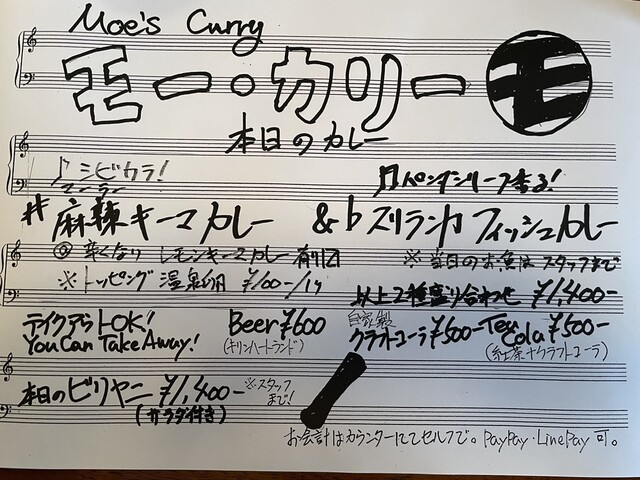 Moe's Curry
モー・カリー モ
本日のカレー
♪シビカラ!
マーラー
♫パンダンリーフ香る!
#麻辣キーマカレー &♭スリランカフィッシュカレー
辛くない レモンキーマカレー 有り〼
※当日のお魚はスタッフまで
※トッピング 温泉卵 ¥100-/1ケ
以上2種盛り合わせ ¥1,400-
テイクアウトOK!
You Can Take Away!
Beer ¥600
(キリンハートランド)
自家製
クラフトコーラ ¥500-
Tea Cola ¥500-
(紅茶+クラフトコーラ)
本日のビリヤニ ¥1,400-
(サラダ付き)
※スタッフまで!
お会計はカウンターにてセルフで。PayPay・LinePay 可。